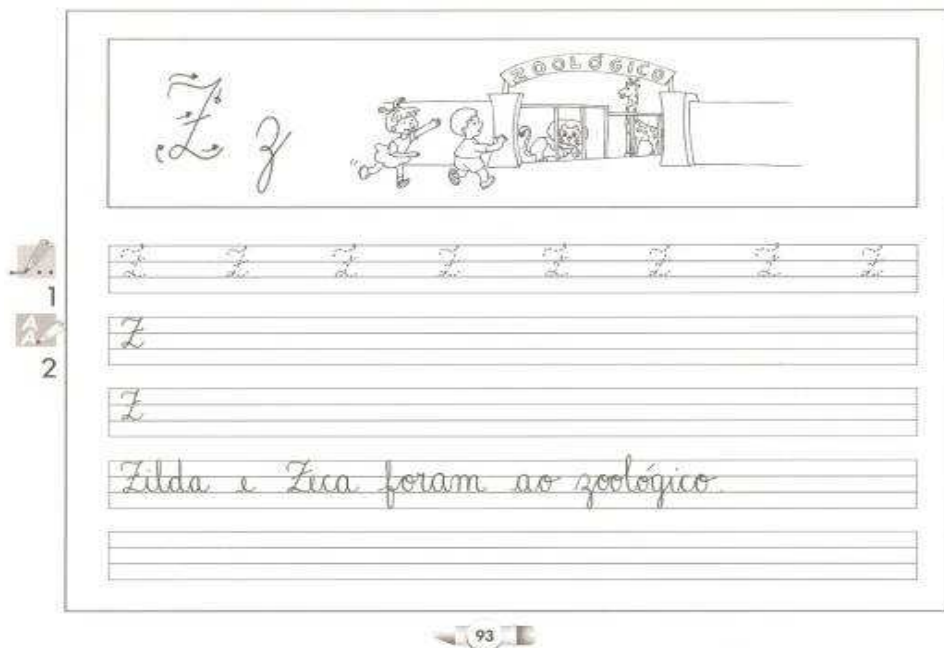 Z z
ZOOLÓGICO
Z Z Z Z Z Z Z Z
1
A
A
Z
2
Z
Zilda e Zeca foram ao zoológico.
93